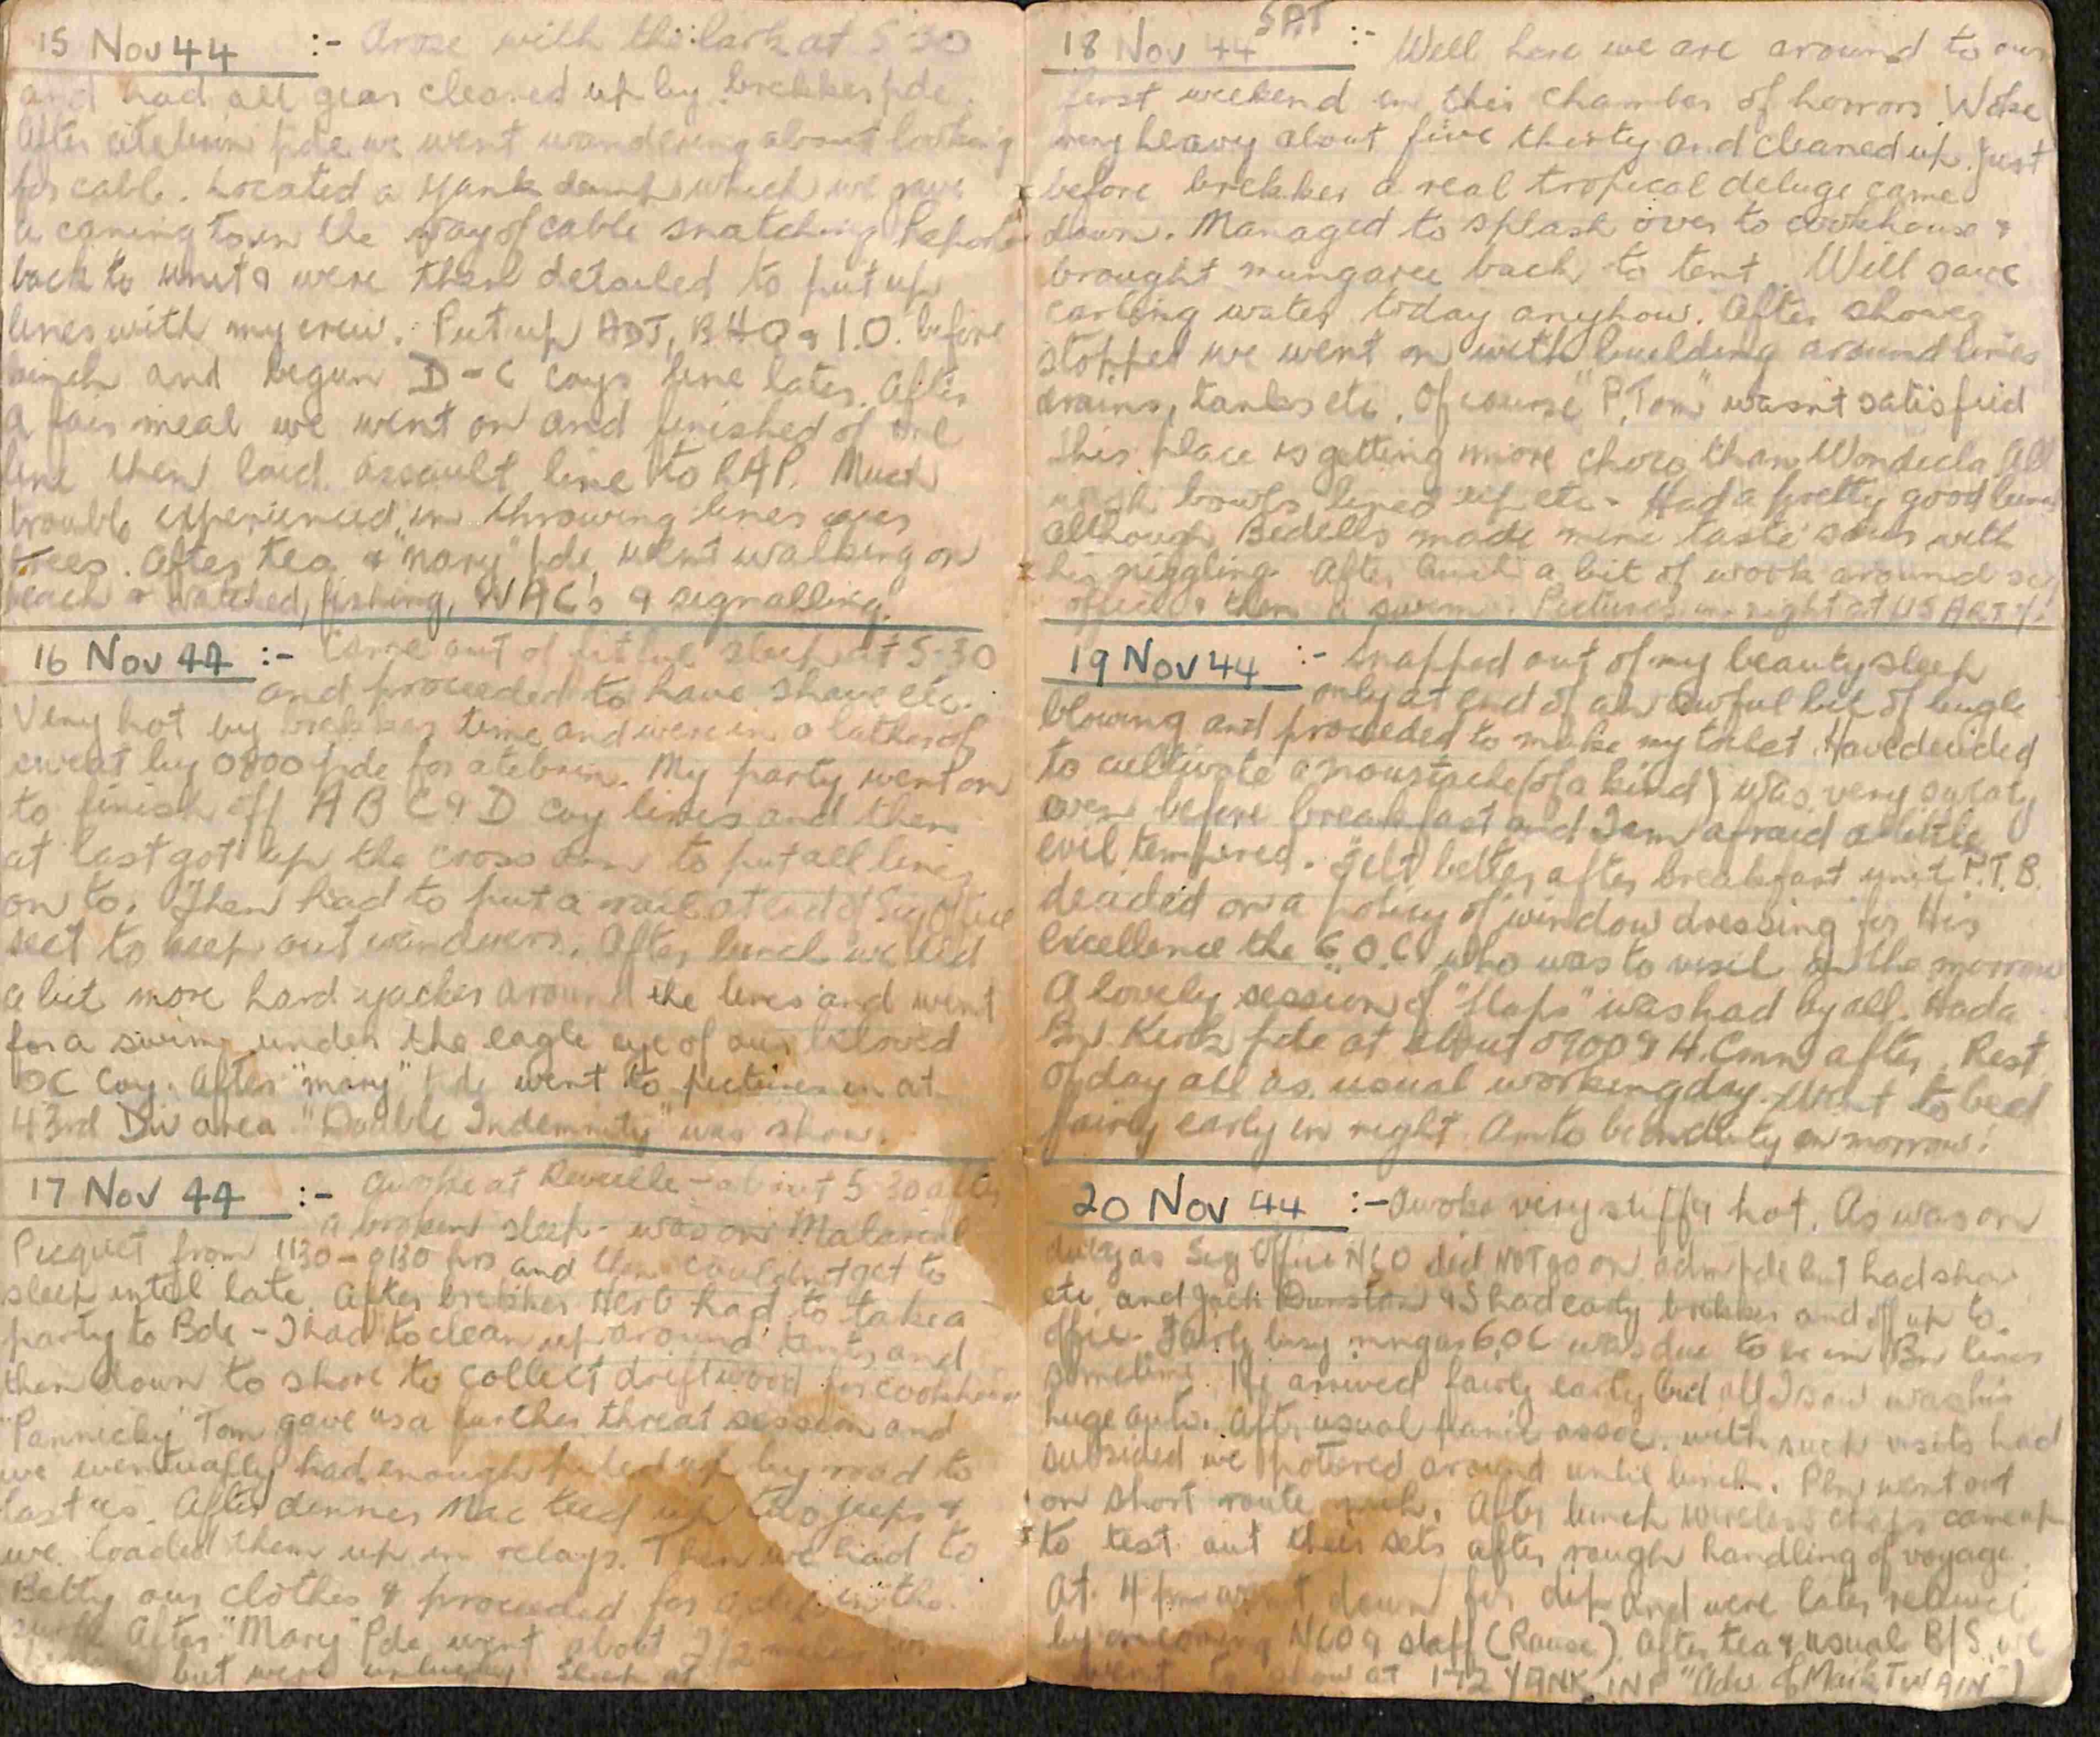 15 Nov 44 :- Arose with the lark at 5.30
and had all gear cleared up by brekker pde.
After atebrin pde we went wandering about looking
for cable. Located a Yank dump which we gave
a caning to in the way of cable snatching. Reported
back to unit & were then detailed to put up
lines with my crew. Put up ADJ, BHQ & I.O. before
lunch and begun D-C coys line later. After
a fair meal we went on and finished of one
line then laid assault line to RAP. Much
trouble experienced in throwing lines over
trees. After tea & "mary" pde, went walking on
beach & watched, fishing, WAC's & signalling.
16 Nov 44 :- Came out of fitful sleep at 5-30
and proceeded to have shave etc.
Very hot by brekker time and were in a lather of
sweat by 0800 pde for atebrin. My party went on
to finish off A B C & D coy lines and then
at last got up the cross arm to put all lines
on to. Then had to put a rail at end of Sig Office
seat to keep out wanderers. After lunch we did
a bit more hard yacker around the lines and went
for a swim under the eagle eye of our beloved
OC Coy. After "mary" pde went to pictures in at
43rd Div area. "Double Indemnity" was shown.
17 Nov 44 :- Awoke at Reveille - about 5 30 after
a broken sleep - was on Malarial
Picquet from 1130-0130 hrs and then couldn't get to
sleep until late. After brekker Herb had to take a
party to Bde - I had to clean up around tents and
then down to shore to collect driftwood for cookhouse
"Pannicky" Tom gave us a further threat session and
we eventually had enough piled up by road to
last us. After dinner Mac teed up two jeeps &
we loaded them up in relays. Then we had to
Betty our clothes & proceeded for a dip in the
surf. After "Mary" Pde went about 2 1/2 miles for
but were unlucky. Sleep at
18 Nov 44 SAT :- Well here we are around to our
first weekend in this chamber of horrors. Woke
very heavy about five thirty and cleaned up. Just
before brekker a real tropical deluge came
down. Managed to splash over to cookhouse &
brought mungaree back to tent. Will save
carting water today anyhow. After shower
stopped we went on with building around lines
drains, tanks etc. Of course "P. Tom" wasn't satisfied
This place is getting more choco than Wondecla. All
wash bowls lined up etc - Had a pretty good lunch
although Bedells made mine taste sour with
his niggling. After lunch a bit of work around sig
office & then a swim. Pictures in night at US ARTY.
19 Nov 44 :- Snapped out of my beauty sleep
only at end of an awful bit of bugle
blowing and proceeded to make my toilet. Have decided
to cultivate a moustache (of a kind) was very sweaty
even before breakfast and I am afraid a little
evil tempered. Felt better after breakfast until P.T.B.
decided on a policy of window dressing for His
Excellence the G.O.C who was to visit on the morrow
A lovely session of "flaps" was had by all. Had a
Bn. Kirk pde at about 0900 & H. Comm after. Rest
of day all as usual working day. Went to bed
fairly early in night. Am to be on duty on morrow!
20 Nov 44 :- Awoke very stiff & hot. As was on
duty as Sig Office NCO did NOT go on adm pde but had shave
etc and Jack Dunstan & I had early brekker and off up to
office. Fairly busy mng as GOC was due to be in Bn lines
sometime. He arrived fairly early and all I saw was his
huge auto. After usual panic assoc. with such visits had
subsided we pottered around until lunch. Pln went out
on short route mch. After lunch wireless chaps came up
to test out their sets after rough handling of voyage.
At 4 pm went down for dip and were later relieved
by oncoming NCO & staff (Rouse). After tea & usual B/S we
went to show at 172 YANK INF "Adv of Mark TWAIN"!